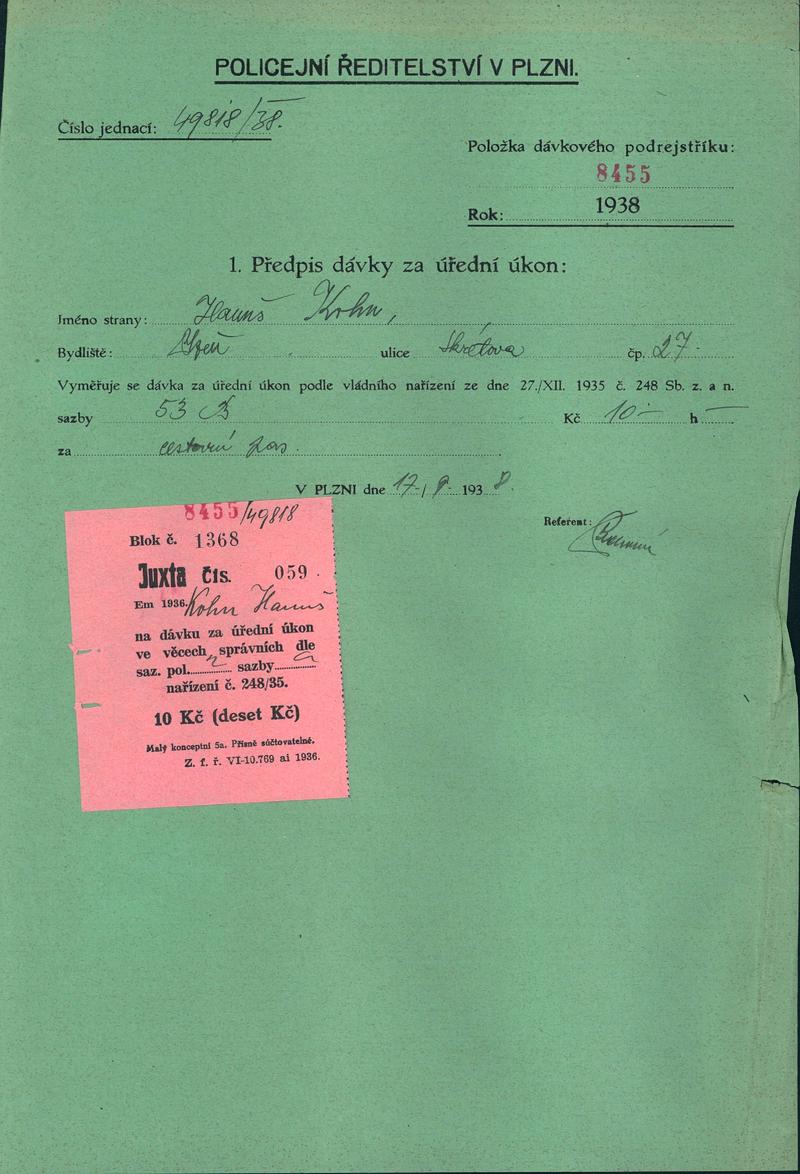 POLICEJNÍ ŘEDITELSTVÍ V PLZNI.
Číslo jednací: 49818/38.
Položka dávkového podrejstříku:
8455
Rok: 1938
1. Předpis dávky za úřední úkon:
Jméno strany: Hanuš Kohn,
Bydliště: Plzeň ulice Škrétova čp. 27.
Vyměřuje se dávka za úřední úkon podle vládního nařízení ze dne 27./XII. 1935 č. 248 Sb. z. a n.
sazby 53 B Kč 10 — h —
za cestovní pas.
V PLZNI dne 17./9. 1938.
Referent:
8455/49818
Blok č. 1368
Juxta čís. 059
Em 1936. Kohn Hanuš
na dávku za úřední úkon
ve věcech správních dle
saz. pol. sazby
nařízení č. 248/35.
10 Kč (deset Kč)
Malý konceptní 5a. Přísně súčtovatelné.
Z. f. ř. VI-10.769 ai 1936.